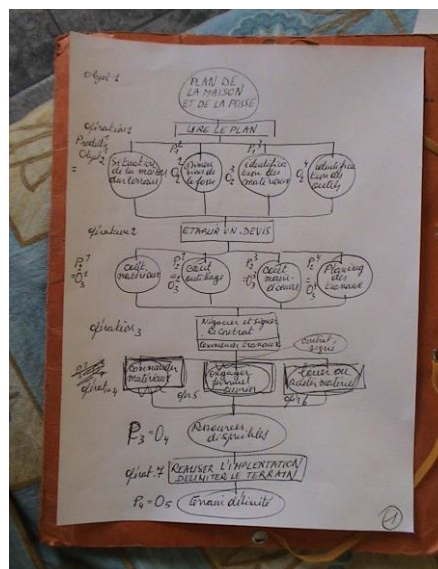 Objet 1
PLAN DE
LA MAISON
ET DE LA FOSSE
opération 1
LIRE LE PLAN
Produits
Objet 2
=
Situation
de la maison
sur terrain
O2 2
de la fosse
O2 3
identifica
tion des
matériaux
O2 4
identifica
tion des
outils
opération 2
ETABLIR UN DEVIS
P2 1
= O3 1
Coût
matériaux
P2 2
= O3 2
Coût
outillage
P2 3
= O3 3
Coût
main-
d'œuvre
P2 4
= O3 4
Planning
des
travaux
opération 3
Négocier et signer
le contrat
commencer travaux
contrat
signé
opérat. 4
Commander
matériaux
opér 5
Engager
personnel
ouvrier
opér 6
Louer ou
acheter matériel
P3 = O4
Ressources
disponibles
opérat. 7
REALISER L'IMPLENTATION
DELIMITER LE TERRAIN
P4 = O5
terrain délimité
1